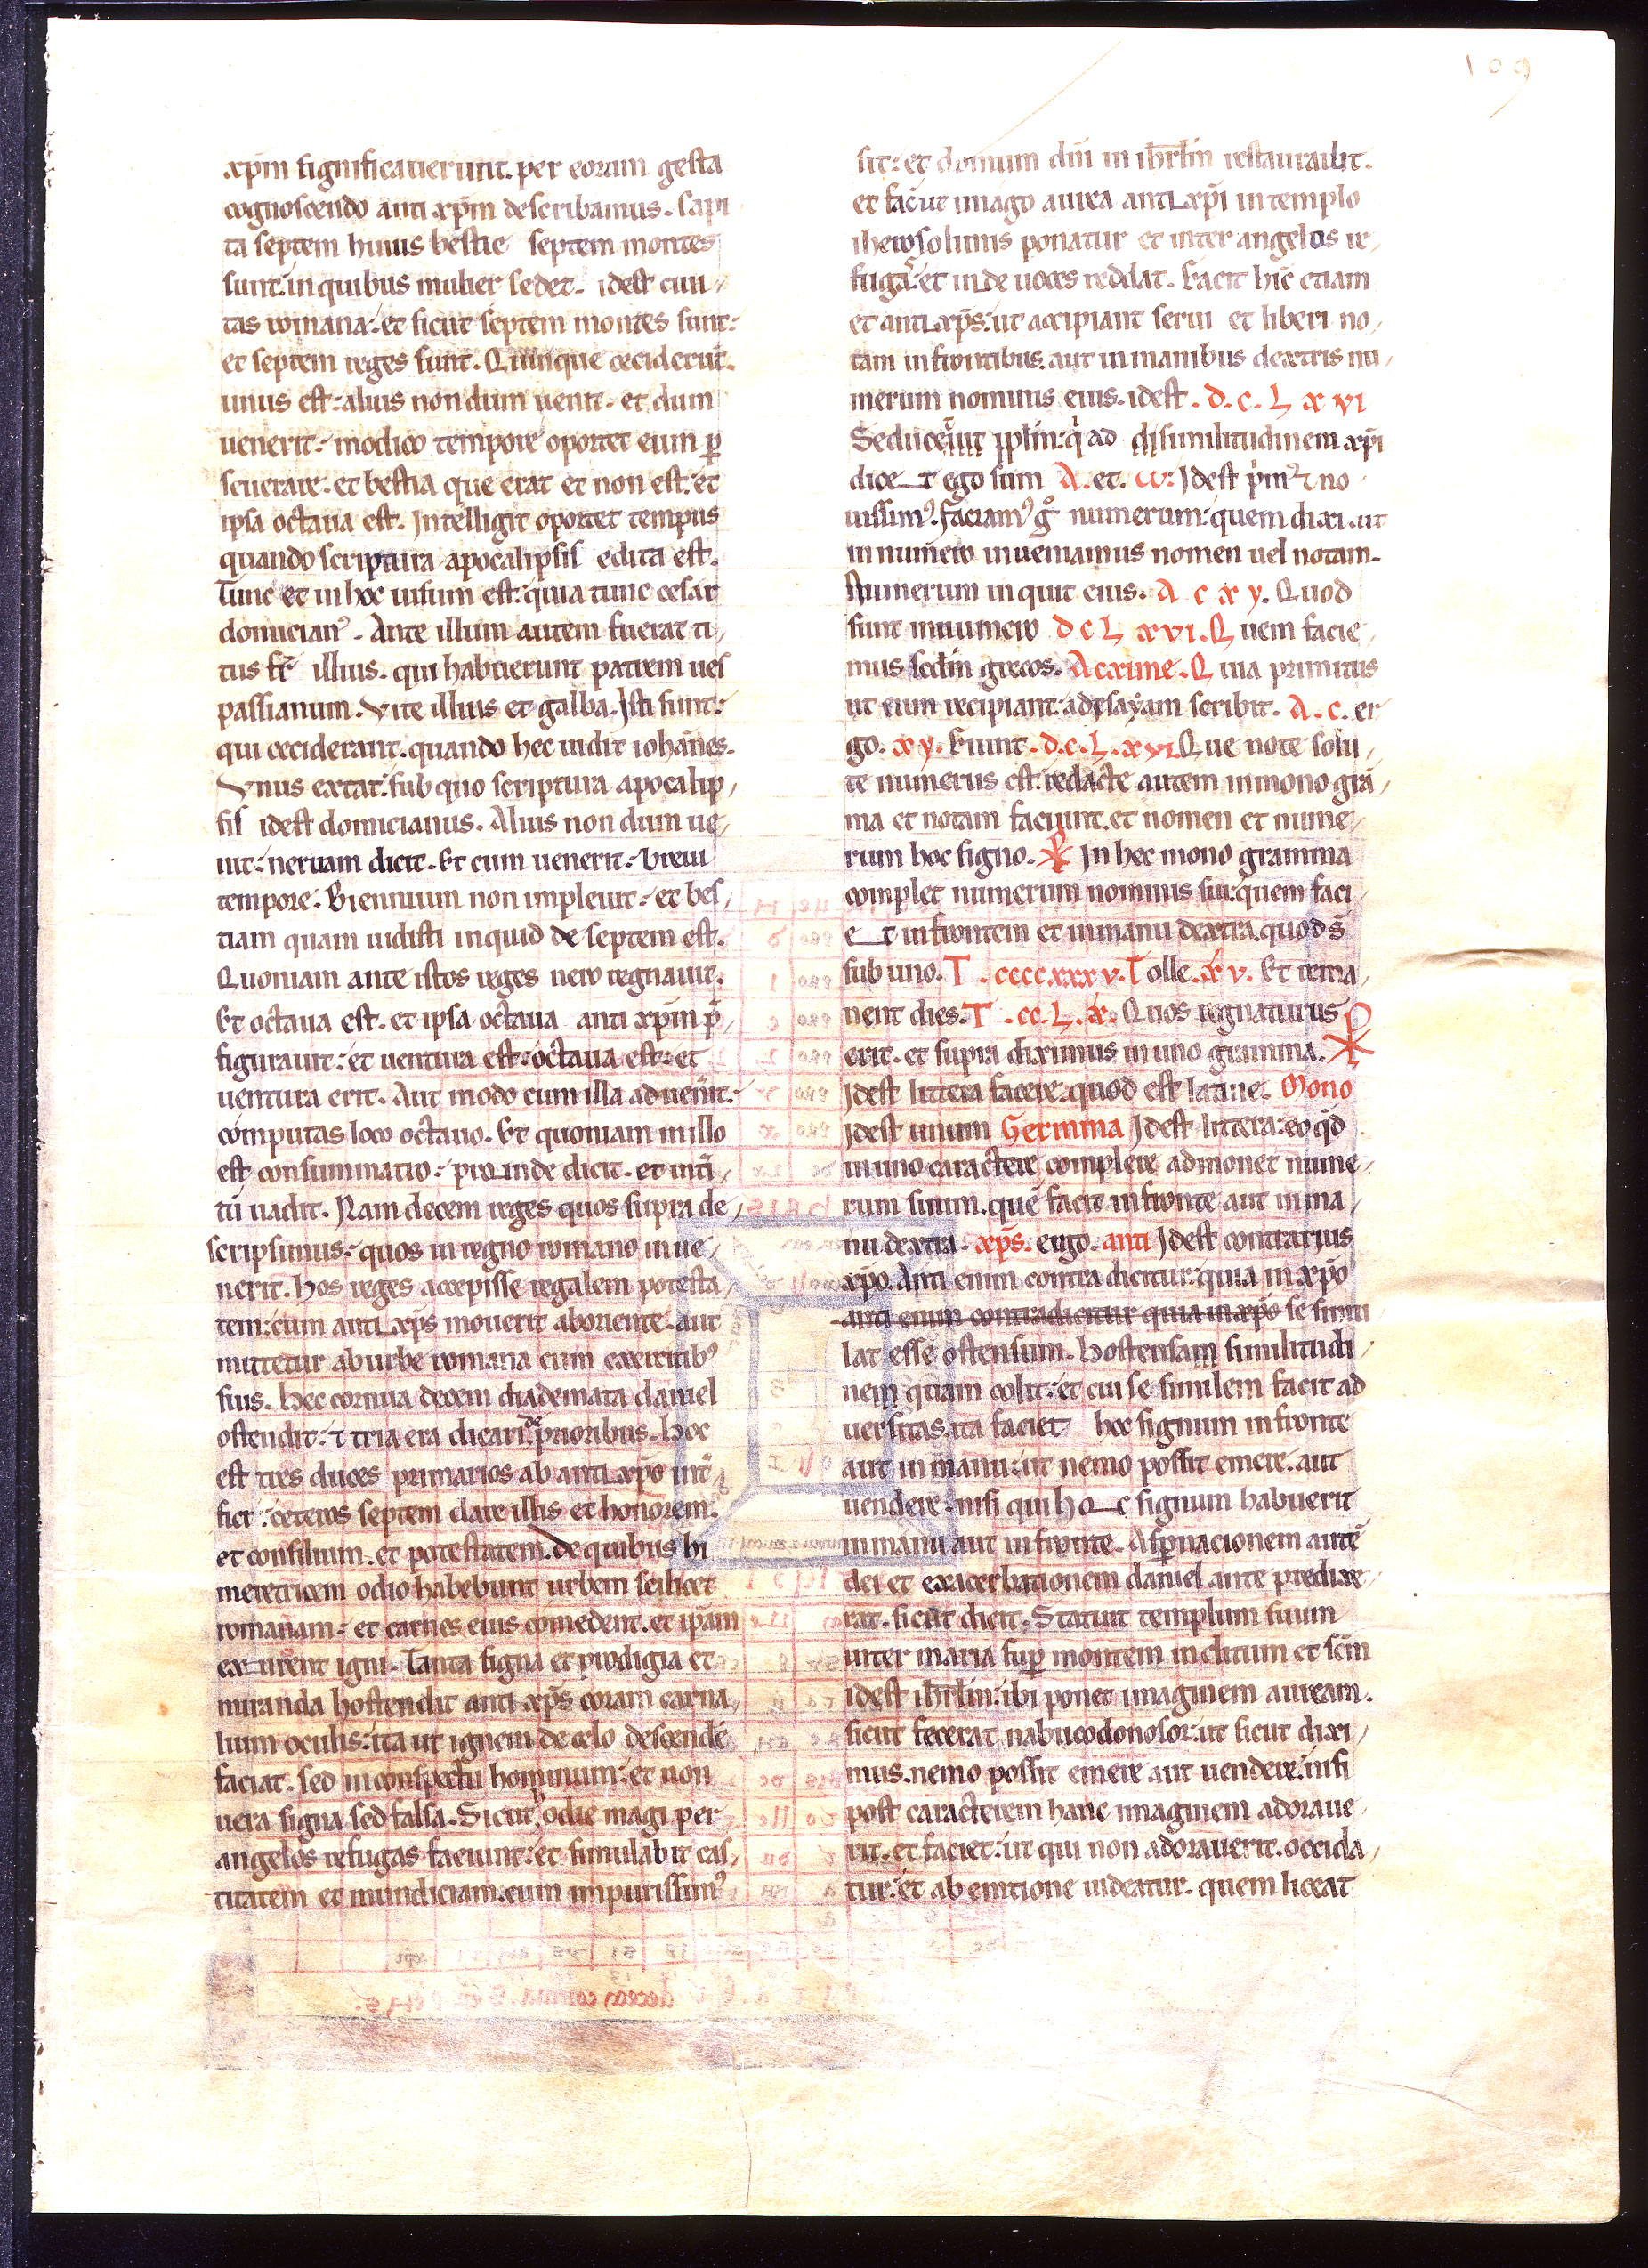 109
xp̄m significauerunt. per eorum gesta
cognoscendo anti xp̄m describamus. Capi
ta septem huius bestie septem montes
sunt. in quibus mulier sedet. idest ciui
tas romana. et sicut septem montes sunt.
et septem reges sunt. Quinque ceciderūt.
unus est. alius non dum uenit. et dum
uenerit. modico tempore oportet eum ꝑ
seuerare. et bestia que erat et non est. et
ipsa octaua est. Intelligit oportet tempus
quando scriptura apocalipsis edita est.
Tunc et in hoc uisum est. quia tunc cesar
domicianꝰ. Ante illum autem fuerat ti
tus fr̄ illius. qui habuerunt patrem ues
passianum. Vite illius et galba. Isti sunt.
qui ceciderant. quando hec uidit iohānes.
Vnus extat. sub quo scriptura apocalip
sis idest domicianus. Alius non dum ue
nit. neruam dicit. Et cum uenerit. breui
tempore. Biennium non impleuit. et bes
tiam quam uidisti inquid de septem est.
Quoniam ante istos reges nero regnauit.
Et octaua est. et ipsa octaua anti xp̄m p̄
figurauit. et uentura est. octaua est. et
uentura erit. Aut modo cum illa aduenīt.
computas loco octauo. Et quoniam in illo
est consummatio. proinde dicit. et intī
tū uadit. Nam decem reges quos supra de
scripsimus. quos in regno romano inue
nerit. Hos reges accepisse regalem potesta
tem. cum anti xp̄s mouerit aboriente. aut
mittetur ab urbe romana cum exercitibꝰ
suis. Hec cornua decem diademata daniel
ostendit. ⁊ tria eradicari de prioribus. Hoc
est tres duces primarios ab anti xp̄o int̄
fici. ceteros septem dare illis et honorem.
et consilium. et potestatem. de quibus hi
meretricem odio habebunt urbem scilicet
romanam. et carnes eius comedent. et ip̄am
exurent igni. Tanta signa et prodigia et
miranda hostendit anti xp̄s coram carna
lium oculis. ita ut ignem de celo descendē
faciat. sed in conspectu hominum. et non
uera signa sed falsa. Sicut hodie magi per
angelos refugas faciunt. et simulabit cas
titatem et mundiciam. cum impurissimꝰ
sit. et domum dn̄i in ihr̄lm restaurabit.
et faciet imago aurea anti xp̄i in templo
iherosolimis ponatur et inter angelos re
fugas. et inde uoces reddat. Facit hic etiam
et anti xp̄s. ut accipiant serui et liberi no
tam in frontibus. aut in manibus dextris nu
merum nominis eius. idest. d. c. L x vi
Seducerūt ipsīm. qi ad disimilitudinem xp̄i
dicet ego sum A. et. ω. Idest prīmꝰ ⁊ no
uissimꝰ. faciamꝰ gͦ numerum. quem dixi. ut
in numero inueniamus nomen uel notam.
Numerum inquit eius. A c x y. Quod
sunt in numero d c L x vi. Quem facie
mus scdm grecos. Acxime. Quia primitus
ut eum recipiant. ad esayam scribit. A. c. er
go. x y. Fiunt. d. c. L. x vi Que note solu
te numerus est. redacte autem in mono grā
ma et notam faciunt. et nomen et nume
rum hoc signo. ☧ In hec mono gramma
complet numerum nominis sui. quem faci
et in frontem et in manu dextra. quod s̄
sub uno. T. cccc. xxx v. Tolle. x v. Et rema
nent dies. T. cc. L. x. Quos regnaturus ☧
erit. et supra diximus in uno gramma.
Idest littera facere. quod est latine. Mono
Idest unum Germma Idest littera. eo qd̄
in uno caractere complere admonet nume
rum suum. quē facit in fronte aut in ma
nu dextra. xp̄s. ergo. anti Idest contrarius
xp̄o. Anti enim contra dicitur. quia in xp̄o
anti enim contradicitur quia in xp̄o se simu
lat esse ostensum. hostensam similitudi
nem quam colit. et cui se similem facit ad
uersitas. ita faciet hoc signum in fronte
aut in manu. ut nemo possit emere. aut
uendere. nisi qui hoc signum habuerit
in manu aut in fronte. Aspnacionem autē
dei et exacerbationem daniel ante predixe
rat. sicut dicit. Statuit templum suum
inter maria suꝑ montem inclitum et scm̄
Idest ihr̄lm. ibi ponet imaginem auream.
sicut fecerat nabucodonosor. ut sicut dixi
mus. nemo possit emere aut uendere. nisi
post caracterem hanc imaginem adoraue
rit. et faciet. ut qui non adorauerit. occida
tur. et ab emtione uideatur. quem liceat